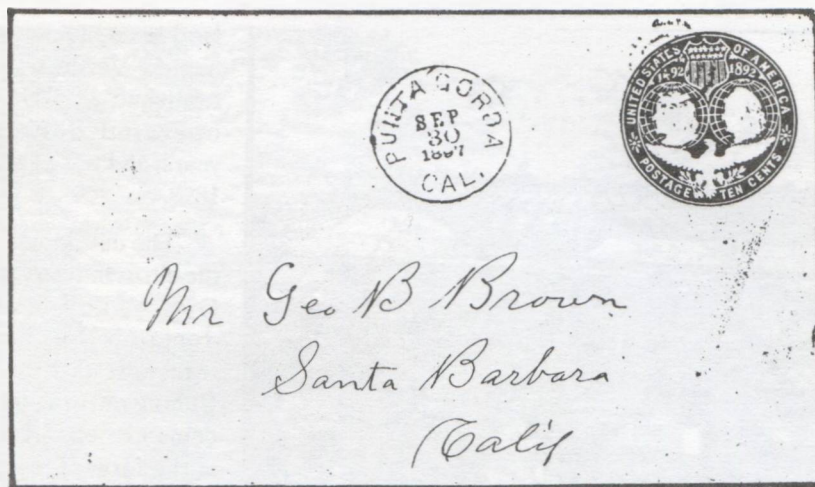 PUNTA GORDA
SEP
30
1897
CAL.
UNITED STATES OF AMERICA
1492 1892
POSTAGE TEN CENTS
Mr Geo B Brown
Santa Barbara
Calif